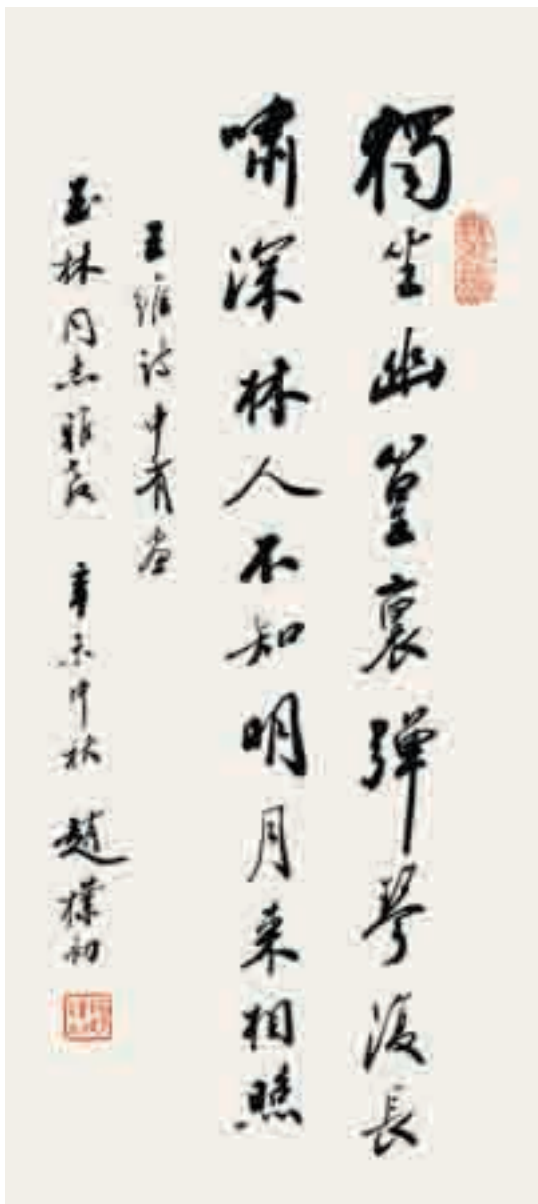 獨坐幽篁裏彈琴復長
嘯深林人不知明月来相照
王維詩中有画
玉林同志雅教 辛未中秋 趙樸初